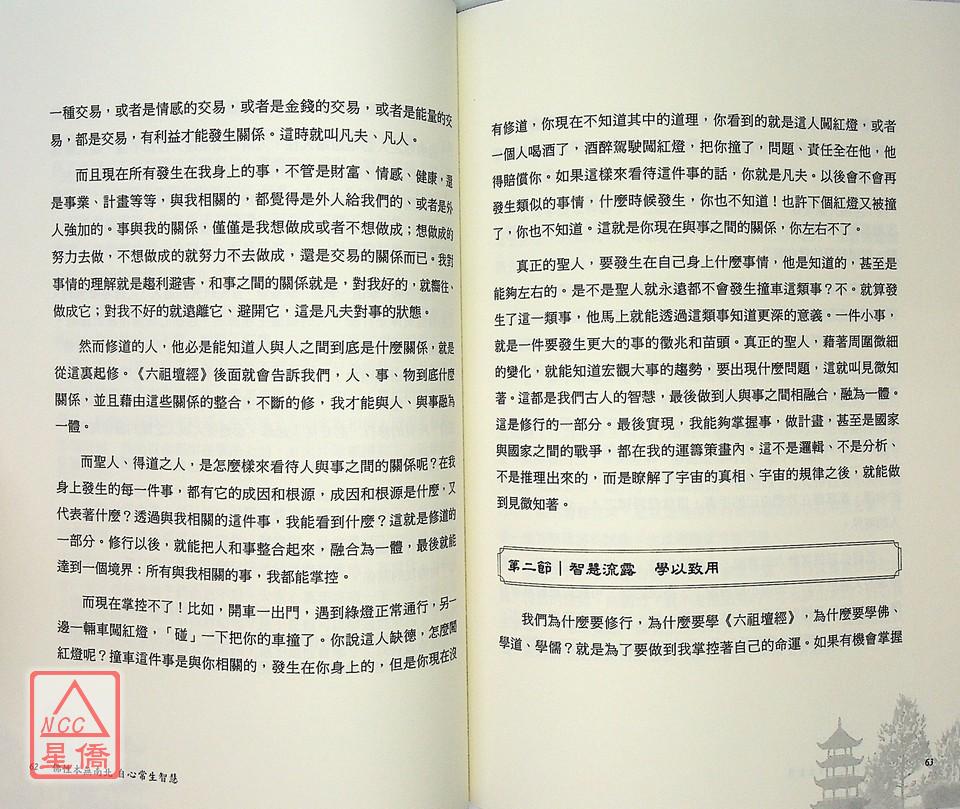 一種交易，或者是情感的交易，或者是金錢的交易，或者是能量的交
易，都是交易，有利益才能發生關係。這時就叫凡夫、凡人。
而且現在所有發生在我身上的事，不管是財富、情感、健康，還
是事業、計畫等等，與我相關的，都覺得是外人給我們的、或者是外
人強加的。事與我的關係，僅僅是我想做成或者不想做成；想做成的
努力去做，不想做成的就努力不去做成，還是交易的關係而已。我對
事情的理解就是趨利避害，和事之間的關係就是，對我好的，就嚮往、
做成它；對我不好的就遠離它、避開它，這是凡夫對事的狀態。
然而修道的人，他必是能知道人與人之間到底是什麼關係，就是
從這裏起修。《六祖壇經》後面就會告訴我們，人、事、物到底什麼
關係，並且藉由這些關係的整合，不斷的修，我才能與人、與事融為
一體。
而聖人、得道之人，是怎麼樣來看待人與事之間的關係呢？在我
身上發生的每一件事，都有它的成因和根源，成因和根源是什麼，又
代表著什麼？透過與我相關的這件事，我能看到什麼？這就是修道的
一部分。修行以後，就能把人和事整合起來，融合為一體，最後就能
達到一個境界：所有與我相關的事，我都能掌控。
而現在掌控不了！比如，開車一出門，遇到綠燈正常通行，另一
邊一輛車闖紅燈，「碰」一下把你的車撞了。你說這人缺德，怎麼闖
紅燈呢？撞車這件事是與你相關的，發生在你身上的，但是你現在沒
NCC
星僑
62 佛性本無南北 自心常生智慧
有修道，你現在不知道其中的道理，你看到的就是這人闖紅燈，或者
一個人喝酒了，酒醉駕駛闖紅燈，把你撞了，問題、責任全在他，他
得賠償你。如果這樣來看待這件事的話，你就是凡夫。以後會不會再
發生類似的事情，什麼時候發生，你也不知道！也許下個紅燈又被撞
了，你也不知道。這就是你現在與事之間的關係，你左右不了。
真正的聖人，要發生在自己身上什麼事情，他是知道的，甚至是
能夠左右的。是不是聖人就永遠都不會發生撞車這類事？不。就算發
生了這一類事，他馬上就能透過這類事知道更深的意義。一件小事，
就是一件要發生更大的事的徵兆和苗頭。真正的聖人，藉著周圍微細
的變化，就能知道宏觀大事的趨勢，要出現什麼問題，這就叫見微知
著。這都是我們古人的智慧，最後做到人與事之間相融合，融為一體。
這是修行的一部分。最後實現，我能夠掌握事，做計畫，甚至是國家
與國家之間的戰爭，都在我的運籌策畫內。這不是邏輯、不是分析、
不是推理出來的，而是瞭解了宇宙的真相、宇宙的規律之後，就能做
到見微知著。
第二節｜智慧流露　學以致用
我們為什麼要修行，為什麼要學《六祖壇經》，為什麼要學佛、
學道、學儒？就是為了要做到我掌控著自己的命運。如果有機會掌握
63